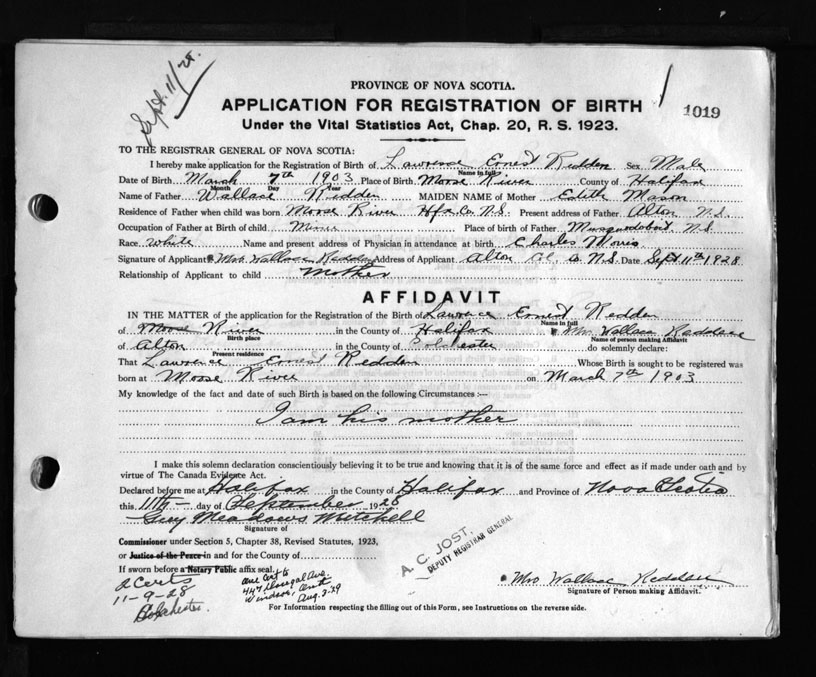 Sept. 11/28.
PROVINCE OF NOVA SCOTIA.
APPLICATION FOR REGISTRATION OF BIRTH
1019
Under the Vital Statistics Act, Chap. 20, R. S. 1923.
TO THE REGISTRAR GENERAL OF NOVA SCOTIA:
I hereby make application for the Registration of Birth of Lawrence Ernest Redden Sex Male
Name in full
Date of Birth March 7th 1903 Place of Birth Moose River County of Halifax
Month Day Year
Name of Father Wallace Redden MAIDEN NAME of Mother Edith Mason
Residence of Father when child was born Moose River Hfx Co. N.S. Present address of Father Alton N.S.
Occupation of Father at Birth of child Miner Place of birth of Father Musquodoboit N.S.
Race White Name and present address of Physician in attendance at birth Charles Morris
Signature of Applicant Mrs Wallace Redden Address of Applicant Alton Col. Co. N.S. Date Sept 11th 1928
Relationship of Applicant to child Mother
AFFIDAVIT
IN THE MATTER of the application for the Registration of the Birth of Lawrence Ernest Redden
Name in full
of Moose River in the County of Halifax Mrs Wallace Reddene
Birth place Name of person making Affidavit
of Alton in the County of Colchester do solemnly declare:
Present residence
That Lawrence Ernest Redden Whose Birth is sought to be registered was
born at Moose River on March 7th 1903
My knowledge of the fact and date of such Birth is based on the following Circumstances :—
I am his mother
I make this solemn declaration conscientiously believing it to be true and knowing that it is of the same force and effect as if made under oath and by
virtue of The Canada Evidence Act.
Declared before me at Halifax in the County of Halifax and Province of Nova Scotia
this 11th day of September 1928
Guy Meadows Mitchell
Signature of
Commissioner under Section 5, Chapter 38, Revised Statutes, 1923,
or Justice of the Peace in and for the County of
If sworn before a Notary Public affix seal.
A. C. JOST.
DEPUTY REGISTRAR GENERAL
2 Certs
11-9-28
Colchester
one Cert to
447 Ave.
Windsor, Ont
Aug. 2. 29
Mrs Wallace Redden
Signature of Person making Affidavit.
For Information respecting the filling out of this Form, see Instructions on the reverse side.